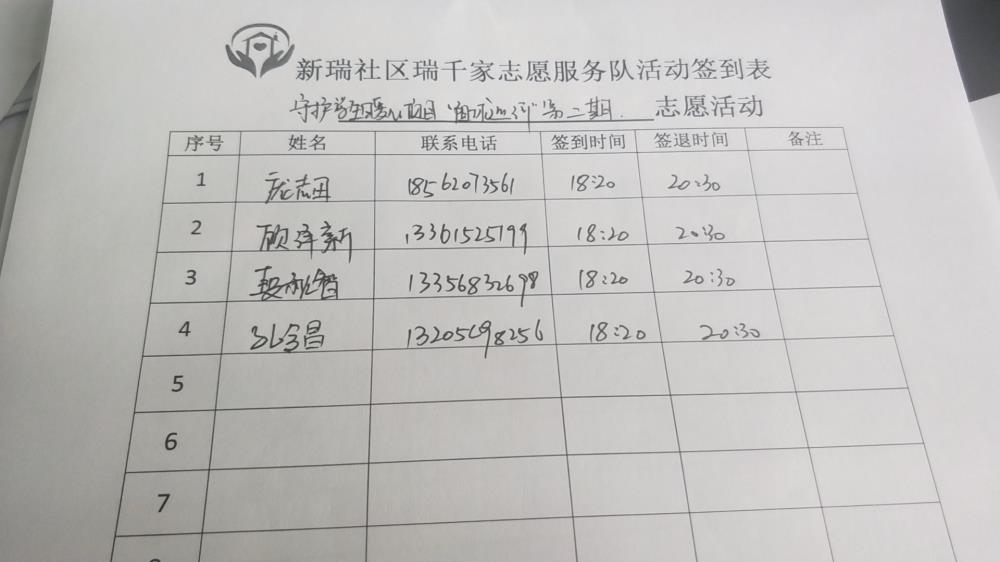 新瑞社区瑞千家志愿服务队活动签到表
守护学生暖心项目 第二期 志愿活动
序号 姓名 联系电话 签到时间 签退时间 备注
1 庞志田 18562073561 18:20 20:30
2 顾泽新 13361525199 18:20 20:30
3 13356832698 18:20 20:30
4 孔令昌 13205698256 18:20 20:30
5
6
7